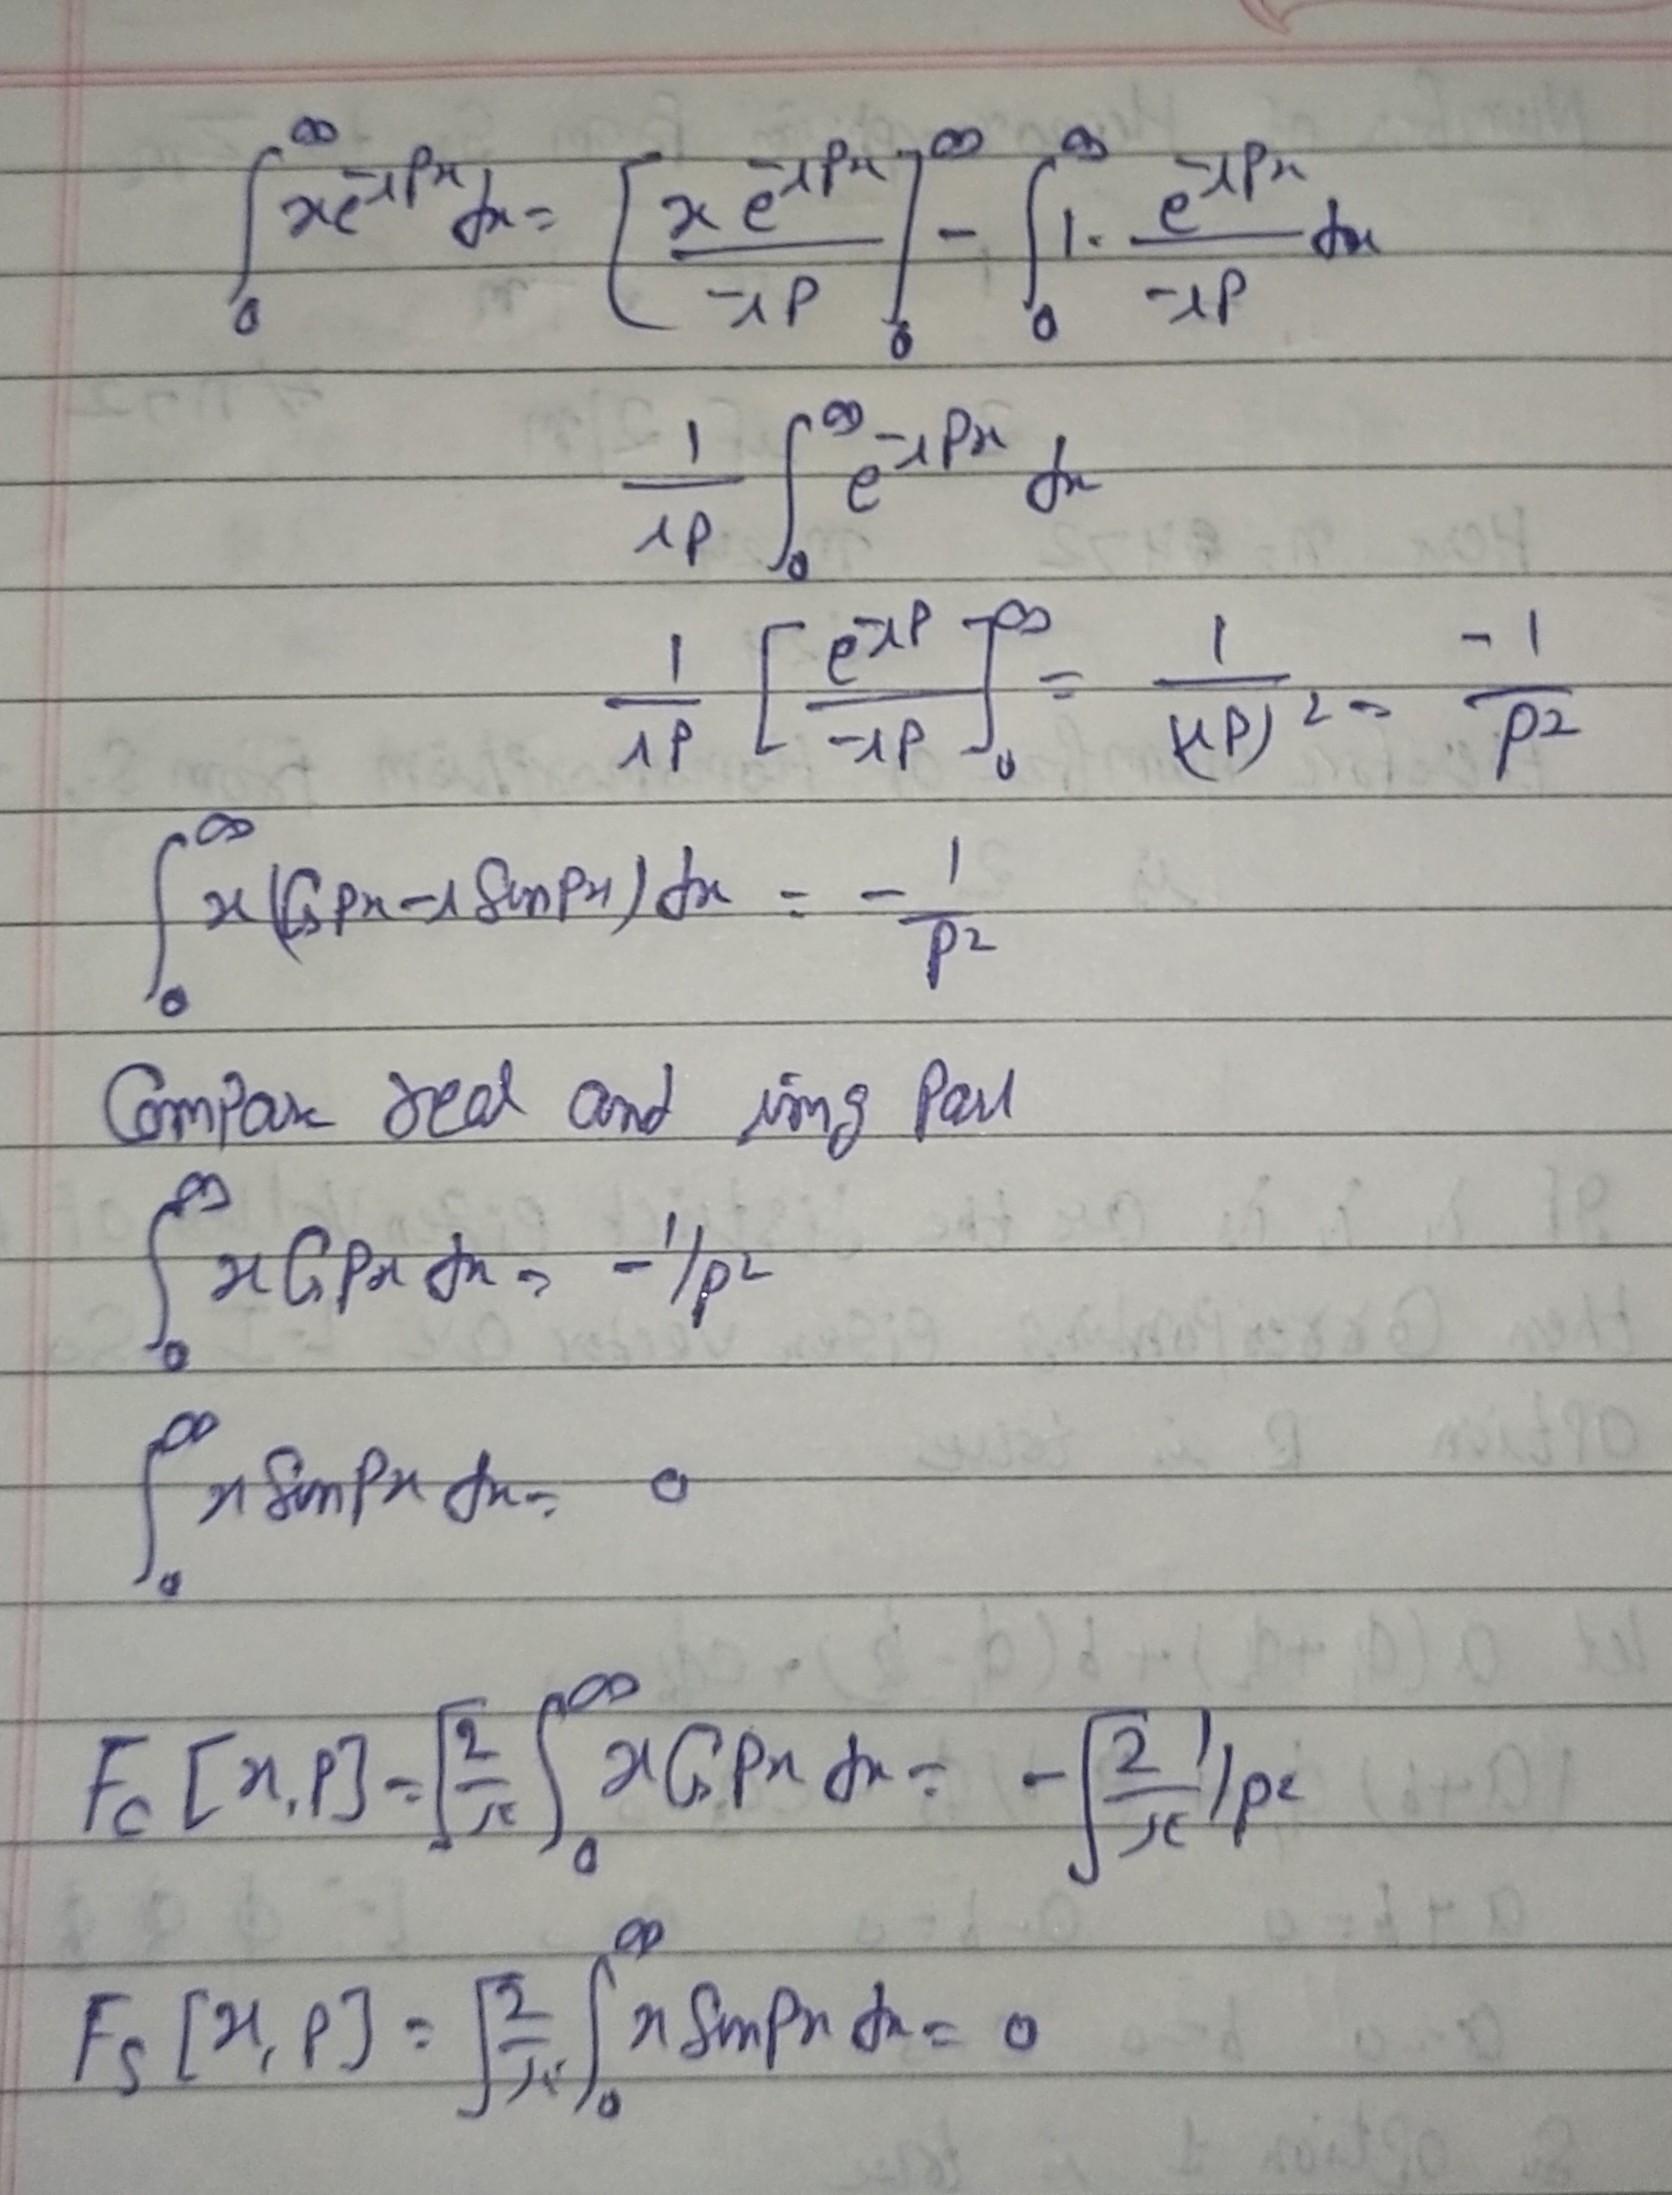 ∫₀^∞ x e^{-iPx} dx = [x e^{-iPx} / -iP]₀^∞ - ∫₀^∞ 1. e^{-iPx} / -iP dx
1/iP ∫₀^∞ e^{-iPx} dx
1/iP [e^{-iP} / -iP]₀^∞ = 1/(iP)² = -1/P²
∫₀^∞ x(Cos Px - i Sin Px) dx = - 1/P²
Compare real and img Part
∫₀^∞ x Cos Px dx = -1/P²
∫₀^∞ x Sin Px dx = 0
F_C [x, P] = √(2/π) ∫₀^∞ x Cos Px dx = -√(2/π) 1/P²
F_S [x, P] = √(2/π) ∫₀^∞ x Sin Px dx = 0